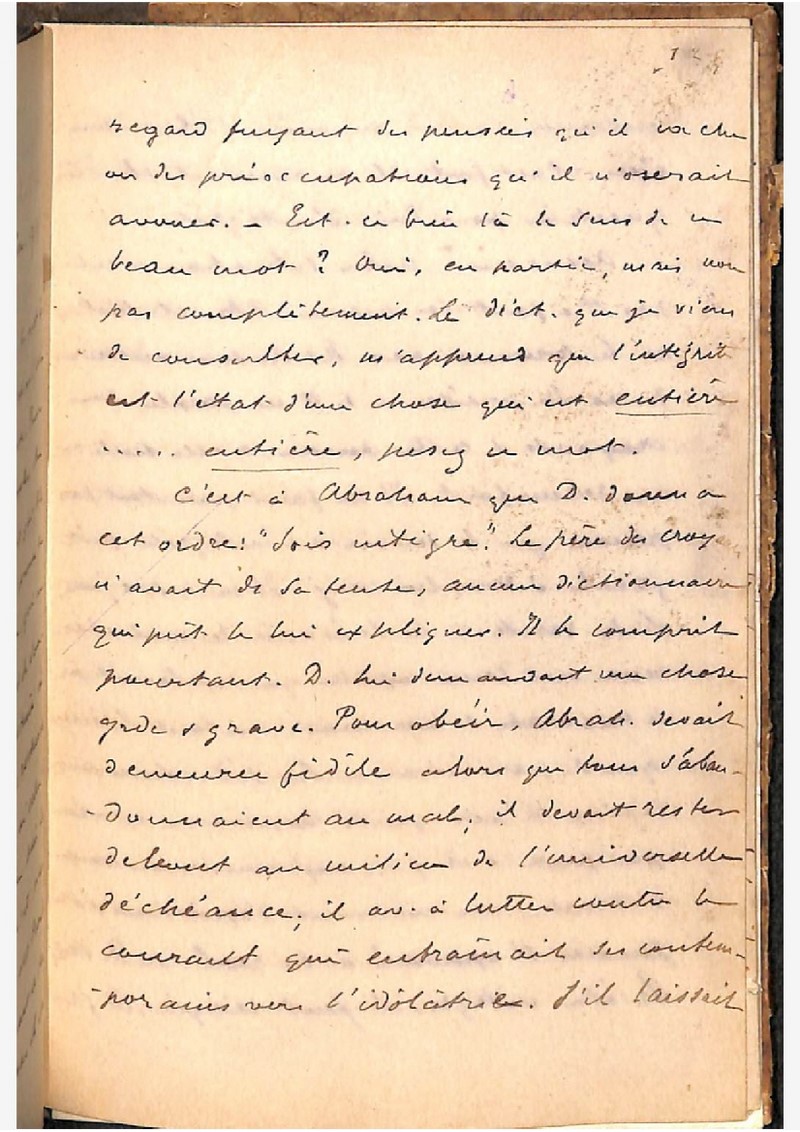 regard fuyant des pensées qu'il cache
ou des préoccupations qu'il n'oserait
avouer. — Est-ce bien là le sens de ce
beau mot ? Oui, en partie, mais non
pas complètement. Le dict. que je viens
de consulter, m'apprend que l'intégrité
est l'état d'une chose qui est entière
..... entière, pesez ce mot.
C'est à Abraham que D. donna
cet ordre: "Sois intègre". Le père des croyants
n'avait ds sa tente, aucun dictionnaire
qui pût le lui expliquer. Il le comprit
pourtant. D. lui demandait une chose
grde & grave. Pour obéir, Abrah. devait
demeurer fidèle alors que tous s'aban-
-donnaient au mal; il devait rester
debout au milieu de l'universelle
déchéance; il av. à lutter contre le
courant qui entraînait ses contem-
-porains vers l'idolâtrie. S'il laissait